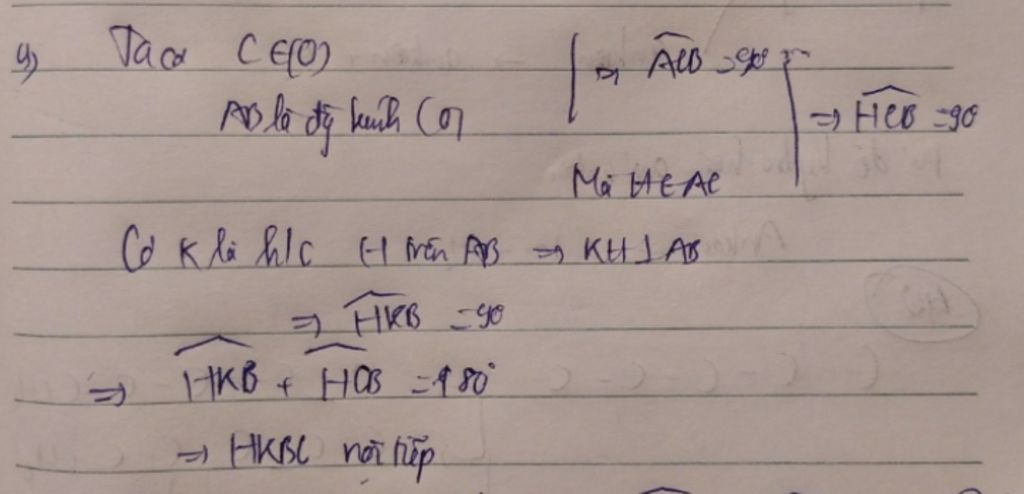 a) Ta có C ∈ (O)
⇒ ACB = 90°
AB là đg kính (O)
⇒ HCB = 90
Mà H ∈ AC
Có K là h/c H trên AB ⇒ KH ⊥ AB
⇒ HKB = 90
⇒ HKB + HCB = 180°
⇒ HKBC nội tiếp